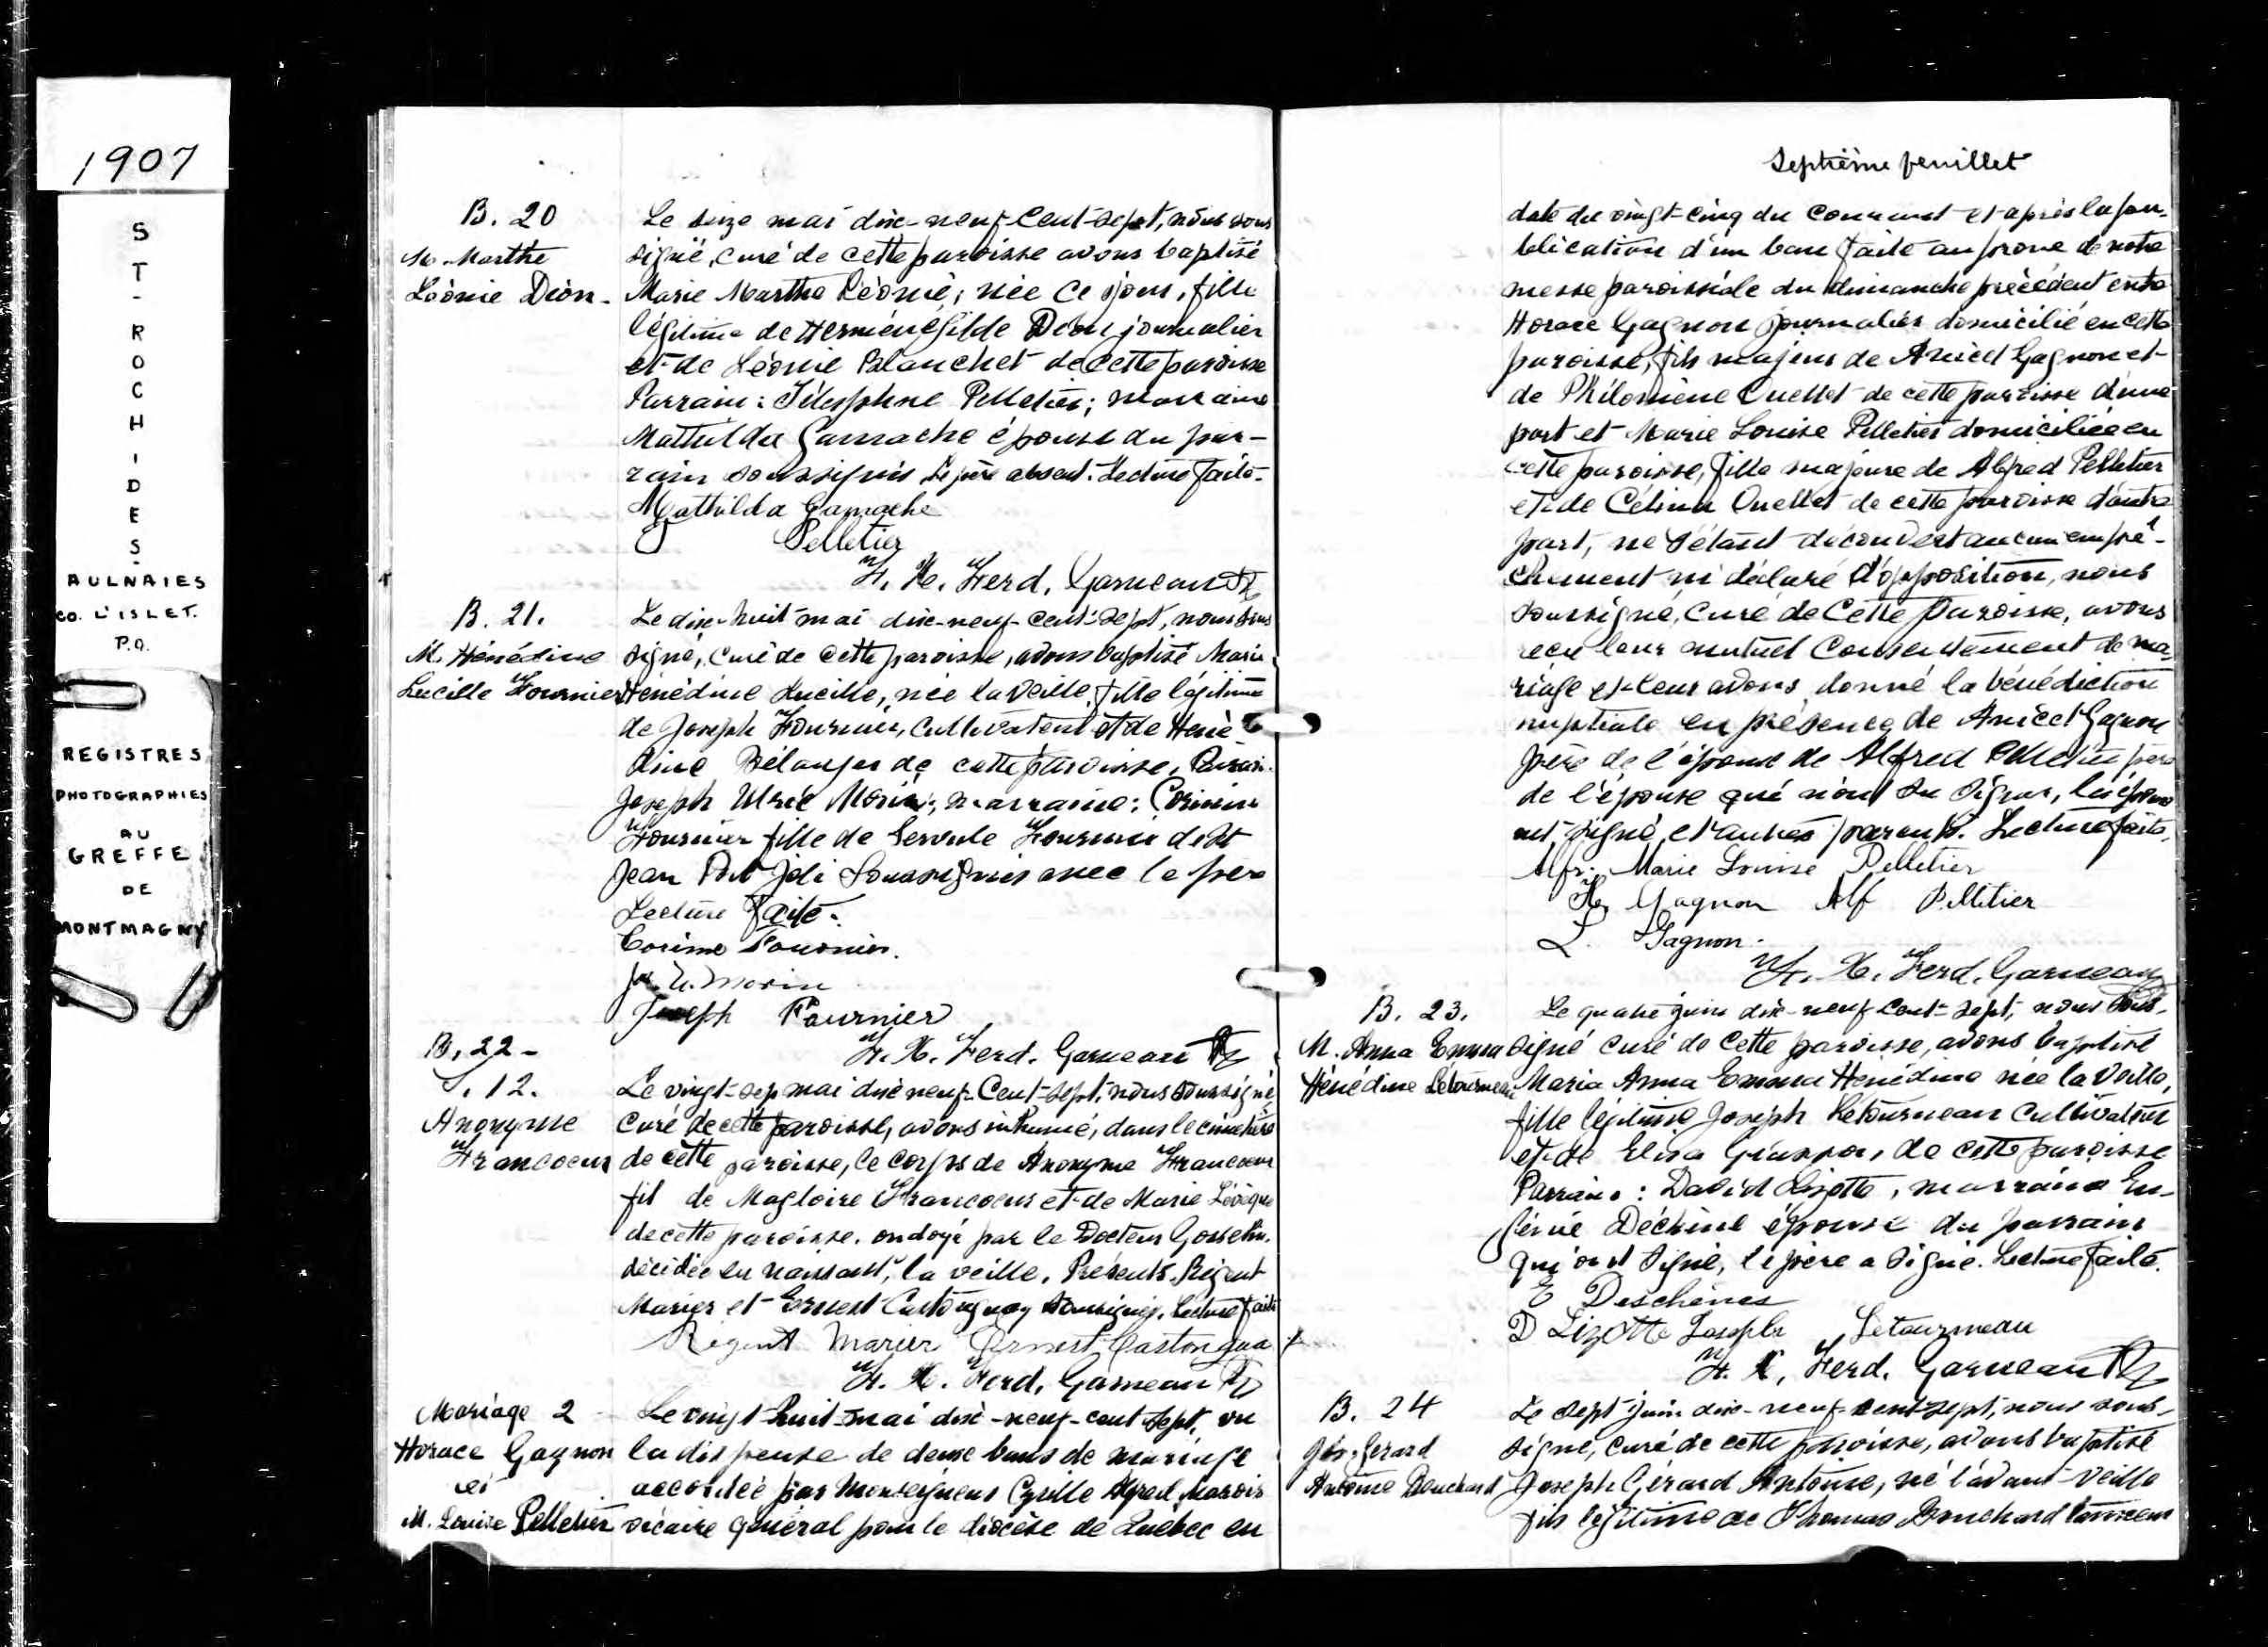 1907
S
T
-
R
O
C
H
-
D
E
S
-
AULNAIES
CO. L'ISLET.
P.Q.
REGISTRES
PHOTOGRAPHIES
AU
GREFFE
DE
MONTMAGNY
B. 20
M. Marthe
Léonie Dion.
Le seize mai dix-neuf-cent-sept, nous sous
signé, curé de cette paroisse avons baptisé
Marie Marthe Léonie, née ce jour, fille
légitime de Herménégilde Dion journalier
et de Léonie Blanchet de cette paroisse
Parrain: Télesphore Pelletier; marraine
Mathilda Gamache épouse du par-
rain soussignés le père absent. Lecture faite.
Mathilda Gamache
Pelletier
F. X. Ferd. Garneau Ptr
B. 21.
M. Hénédine
Lucille Fournier
Le dix-huit mai dix-neuf-cent-sept, nous sous
signé, curé de cette paroisse, avons baptisé Marie
Hénédine Lucille, née la veille, fille légitime
de Joseph Fournier, cultivateur et de Héné
dine Bélanger de cette paroisse, Parrain
Joseph Ulric Morin; marraine: Corinne
Fournier fille de Servule Fournier de St
Jean Port Joli soussignés avec le père
Lecture faite.
Corinne Fournier.
Jos. U. Morin
Joseph Fournier
F. X. Ferd. Garneau Ptr
B. 22-
S. 12.
Anonyme
Francoeur
Le vingt-sep mai dix neuf-cent-sept, nous soussigné,
curé de cette paroisse, avons inhumé, dans le cimetière
de cette paroisse, le corps de Anonyme Francoeur
fil de Magloire Francoeur et de Marie Lévêque
de cette paroisse. ondoyé par le Docteur Gosselin.
décidée en naissant, la veille. Présents Régent
Marier et Ernest Castonguay soussignés. Lecture faite
Régent Marier Ernest Castongua
F. X. Ferd. Garneau Ptr
Mariage 2
Horace Gagnon
et
M. Louise Pelletier
Le vingt-huit mai dix-neuf-cent sept, vu
la dispense de deux bans de mariage
accordée par Monseigneur Cyrille Alfred Marois
vicaire général pour le diocèse de Québec en
Septième feuillet
date du vingt-cinq du courant et après la pu-
blication d'un ban faite au prone de notre
messe paroissiale du dimanche précédent entre
Horace Gagnon journalier domicilié en cette
paroisse, fils majeur de Anicet Gagnon et
de Philomène Ouellet de cette paroisse d'une
part et Marie Louise Pelletier domiciliée en
cette paroisse, fille majeure de Alfred Pelletier
et de Célina Ouellet de cette paroisse d'autre
part, ne s'étant découvert aucun empê-
chement ni déclaré d'opposition, nous
soussigné, curé de cette paroisse, avons
reçu leur mutuel consentement de ma-
riage et leur avons donné la bénédiction
nuptiale en présence de Anicet Gagnon
père de l'époux de Alfred Pelletier père
de l'épouse qui n'ont su signer, les époux
ont signé et autres parents. Lecture faite.
Alfr. Marie Louise Pelletier
H. Gagnon Alf Pelletier
L. Gagnon.
F. X. Ferd. Garneau
B. 23.
M. Anna Emma
Hénédine Létourneau
Le quatre juin dix-neuf-cent-sept, nous sous-
signé curé de cette paroisse, avons baptisé
Maria Anna Emma Henédine née la veille,
fille légitime Joseph Létourneau cultivateur
et de Eliza de cette paroisse
Parrain: David Lizotte, marraine Eu-
génie Déchène épouse du parrain
qui ont signé, le père a signé. Lecture faite.
E Deschènes
D Lizotte Joseph Letourneau
F. X. Ferd. Garneau Ptr
B. 24
Jos. Gérard
Antoine Bouchard
Le sept juin dix-neuf-cent-sept, nous sous-
signé, curé de cette paroisse, avons baptisé
Joseph Gérard Antoine, né l'avant-veille
fils légitime de Thomas Bouchard tanneur